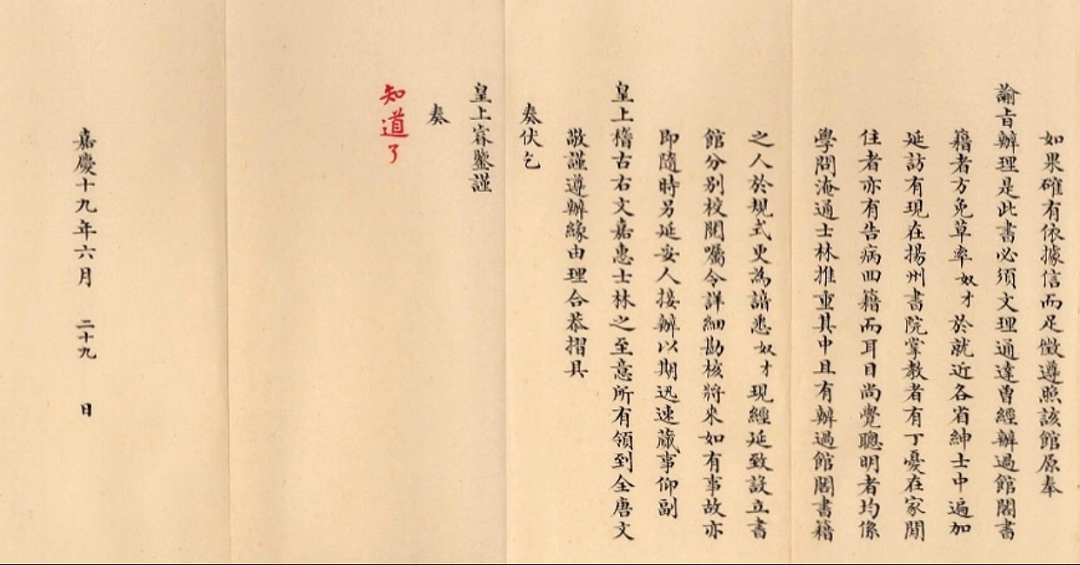 如果確有依據信而足徵遵照該館原奉
諭旨辦理是此書必須文理通達曾經辦過館閣書
籍者方免草率奴才於就近各省紳士中遍加
延訪有現在揚州書院掌教者有丁憂在家閒
住者亦有告病回籍而耳目尚覺聰明者均係
學問淹通士林推重其中且有辦過館閣書籍
之人於規式更為諳悉奴才現經延致設立書
館分別校閱囑令詳細勘核將來如有事故亦
即隨時另延妥人接辦以期迅速蕆事仰副
皇上稽古右文嘉惠士林之至意所有領到全唐文
敬謹遵辦緣由理合恭摺具
奏伏乞
皇上睿鑒謹
奏
知道了
嘉慶十九年六月 二十九 日